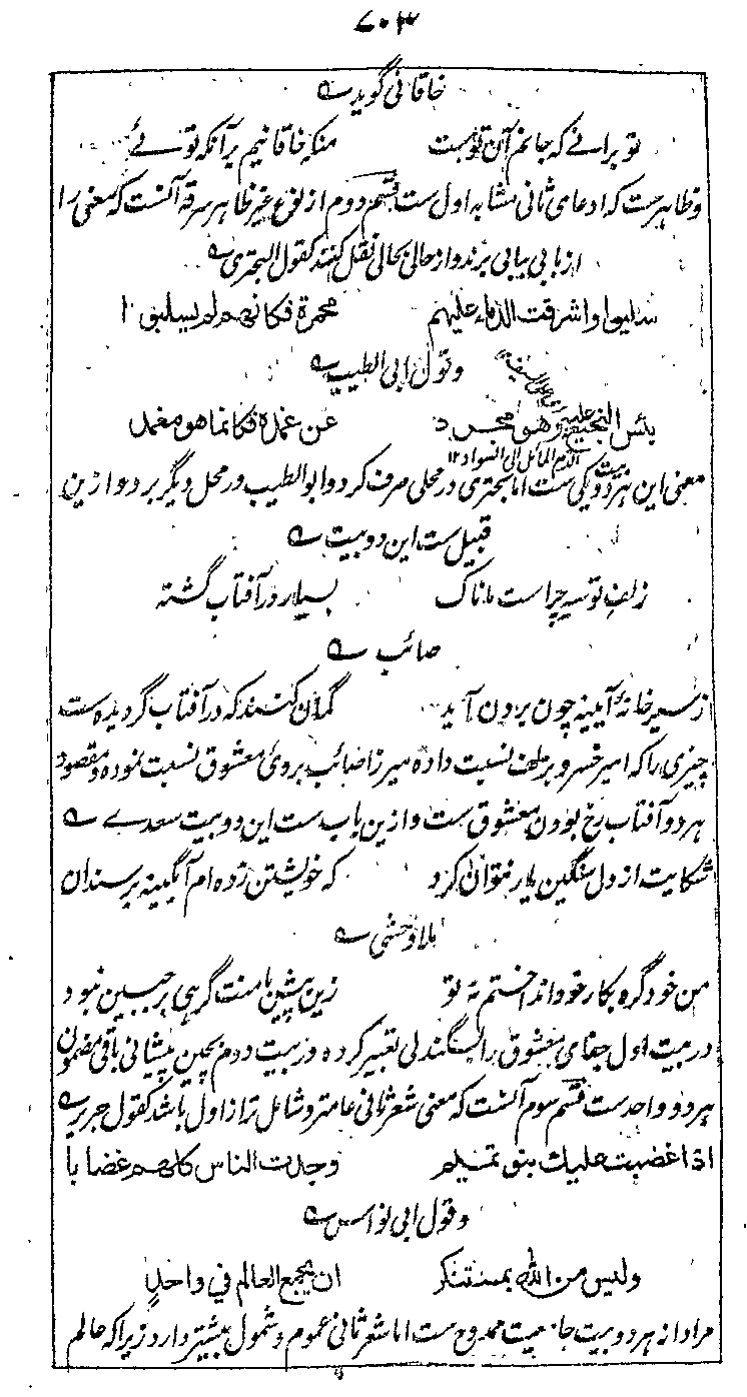 ۷۰۳
خاقانی گوید
تو برانے که جانم آن توست منکه خاقانیم برآنکه توئے
و ظاهرست که ادعای ثانی مشابه اول ست قسم دوم از نوع غیر ظاهر سرقه آنست که معنی را
از بابی ببابی برند و از حالی بحالی نقل کنند کقول البحتری
سلبوا و اشرقت الدماء علیهم محمرة فکانهم لم یسلبوا
و قول ابی الطیب
یئس النجیع علیه وهو مجرد عن غمده فکانما هو مغمد
الدم المائل الی السواد ۱۲
معنی این هر دو بیت یکی ست اما بحتری در محلی صرف کرد و ابو الطیب در محل دیگر برد و ازین
قبیل ست این دو بیت
زلف تو سیه چراست ماناک بسیار در آفتاب گشته
صائب
ز سیر خانهٔ آیینه چون برون آید گمان کنند که در آفتاب گردیده ست
چیزی را که امیر خسرو بزلف نسبت داده میرزا صائب بروی معشوق نسبت نموده و مقصود
هر دو آفتاب رخ بودن معشوق ست و ازین باب ست این دو بیت سعدے
شکایت از دل سنگین یار نتوان کرد که خویشتن زده ام آبگینه بر سندان
ملا وحشی
من خود گره بکار خود انداختم ز تو زین پیش با منت گرهی بر جبین نبود
در بیت اول جفای معشوق را بسنگندلی تعبیر کرده و در بیت دوم بچین پیشانی باقی مضمون
هر دو واحد ست قسم سوم آنست که معنی شعر ثانی عامتر و شامل تر از اول باشد کقول جریر
اذا غضبت علیك بنو تمیم وجدت الناس کلهم غضابا
و قول ابی نواس
ولیس من الله بمستنکر ان یجمع العالم فی واحد
مراد از هر دو بیت جامعیت ممدوح ست اما شعر ثانی عموم و شمول بیشتر دارد زیرا که عالم